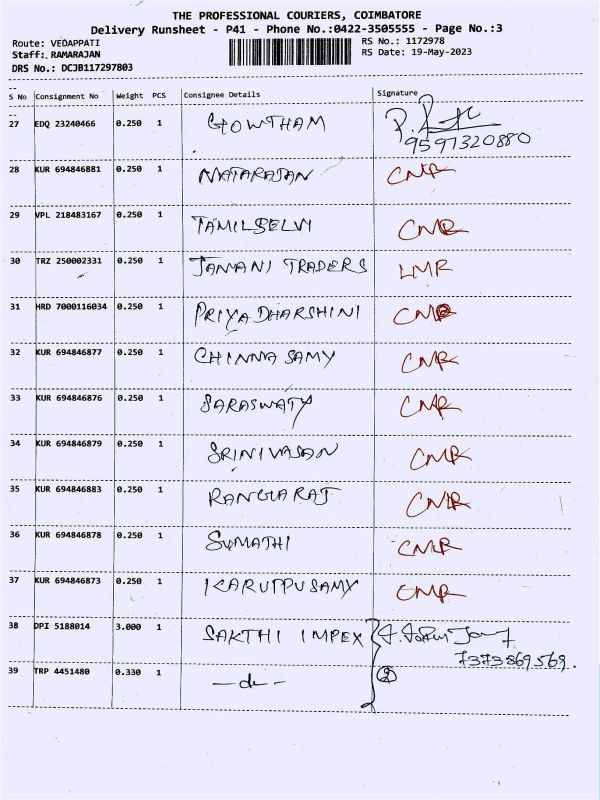 THE PROFESSIONAL COURIERS, COIMBATORE
Delivery Runsheet - P41 - Phone No.:0422-3505555 - Page No.:3
Route: VEDAPPATI RS No.: 1172978
Staff: RAMARAJAN RS Date: 19-May-2023
DRS No.: DCJB117297803
S No Consignment No Weight PCS Consignee Details Signature
27 EDQ 23240466 0.250 1 GOWTHAM
9597320880
28 KUR 694846881 0.250 1 NATARAJAN CMR
29 VPL 218483167 0.250 1 TAMILSELVI CMR
30 TRZ 250002331 0.250 1 JANANI TRADERS LMR
31 HRD 7000116034 0.250 1 PRIYADHARSHINI CMR
32 KUR 694846877 0.250 1 CHINNASAMY CMR
33 KUR 694846876 0.250 1 SARASWATY CMR
34 KUR 694846879 0.250 1 SRINIVASAN CMR
35 KUR 694846883 0.250 1 RANGARAJ CMR
36 KUR 694846878 0.250 1 SUMATHI CMR
37 KUR 694846873 0.250 1 KARUPPUSAMY CMR
38 DPI 5188014 3.000 1 SAKTHI IMPEX
7373569569.
39 TRP 4451480 0.330 1 —do— 2